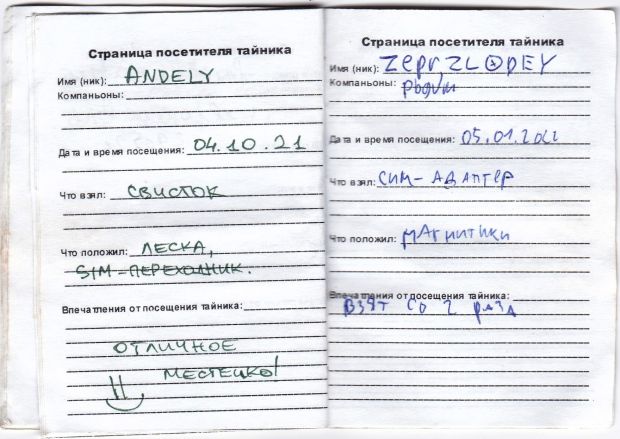 Страница посетителя тайника
Имя (ник): ANDELY
Компаньоны:
Дата и время посещения: 04.10.21
Что взял: СВИСТОК
Что положил: ЛЕСКА,
SIM-ПЕРЕХОДНИК.
Впечатления от посещения тайника:
ОТЛИЧНОЕ
МЕСТЕЧКО!
Страница посетителя тайника
Имя (ник):
Компаньоны:
Дата и время посещения:
Что взял: СИМ-АДАПТЕР
Что положил: МАГНИТИКИ
Впечатления от посещения тайника:
ВЗЯТ СО 2 РАЗА